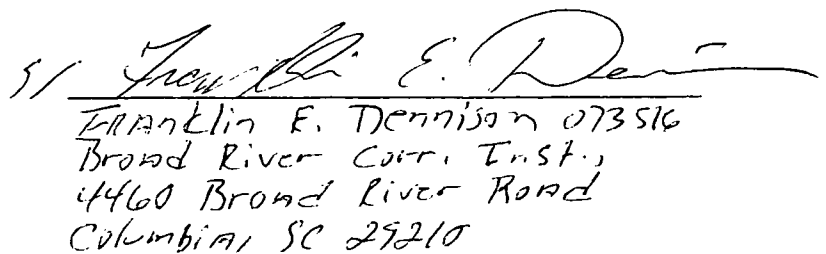 s/ Franklin E. Dennison
Franklin E. Dennison 073516
Broad River Corr. Inst.,
4460 Broad River Road
Columbia, SC 29210